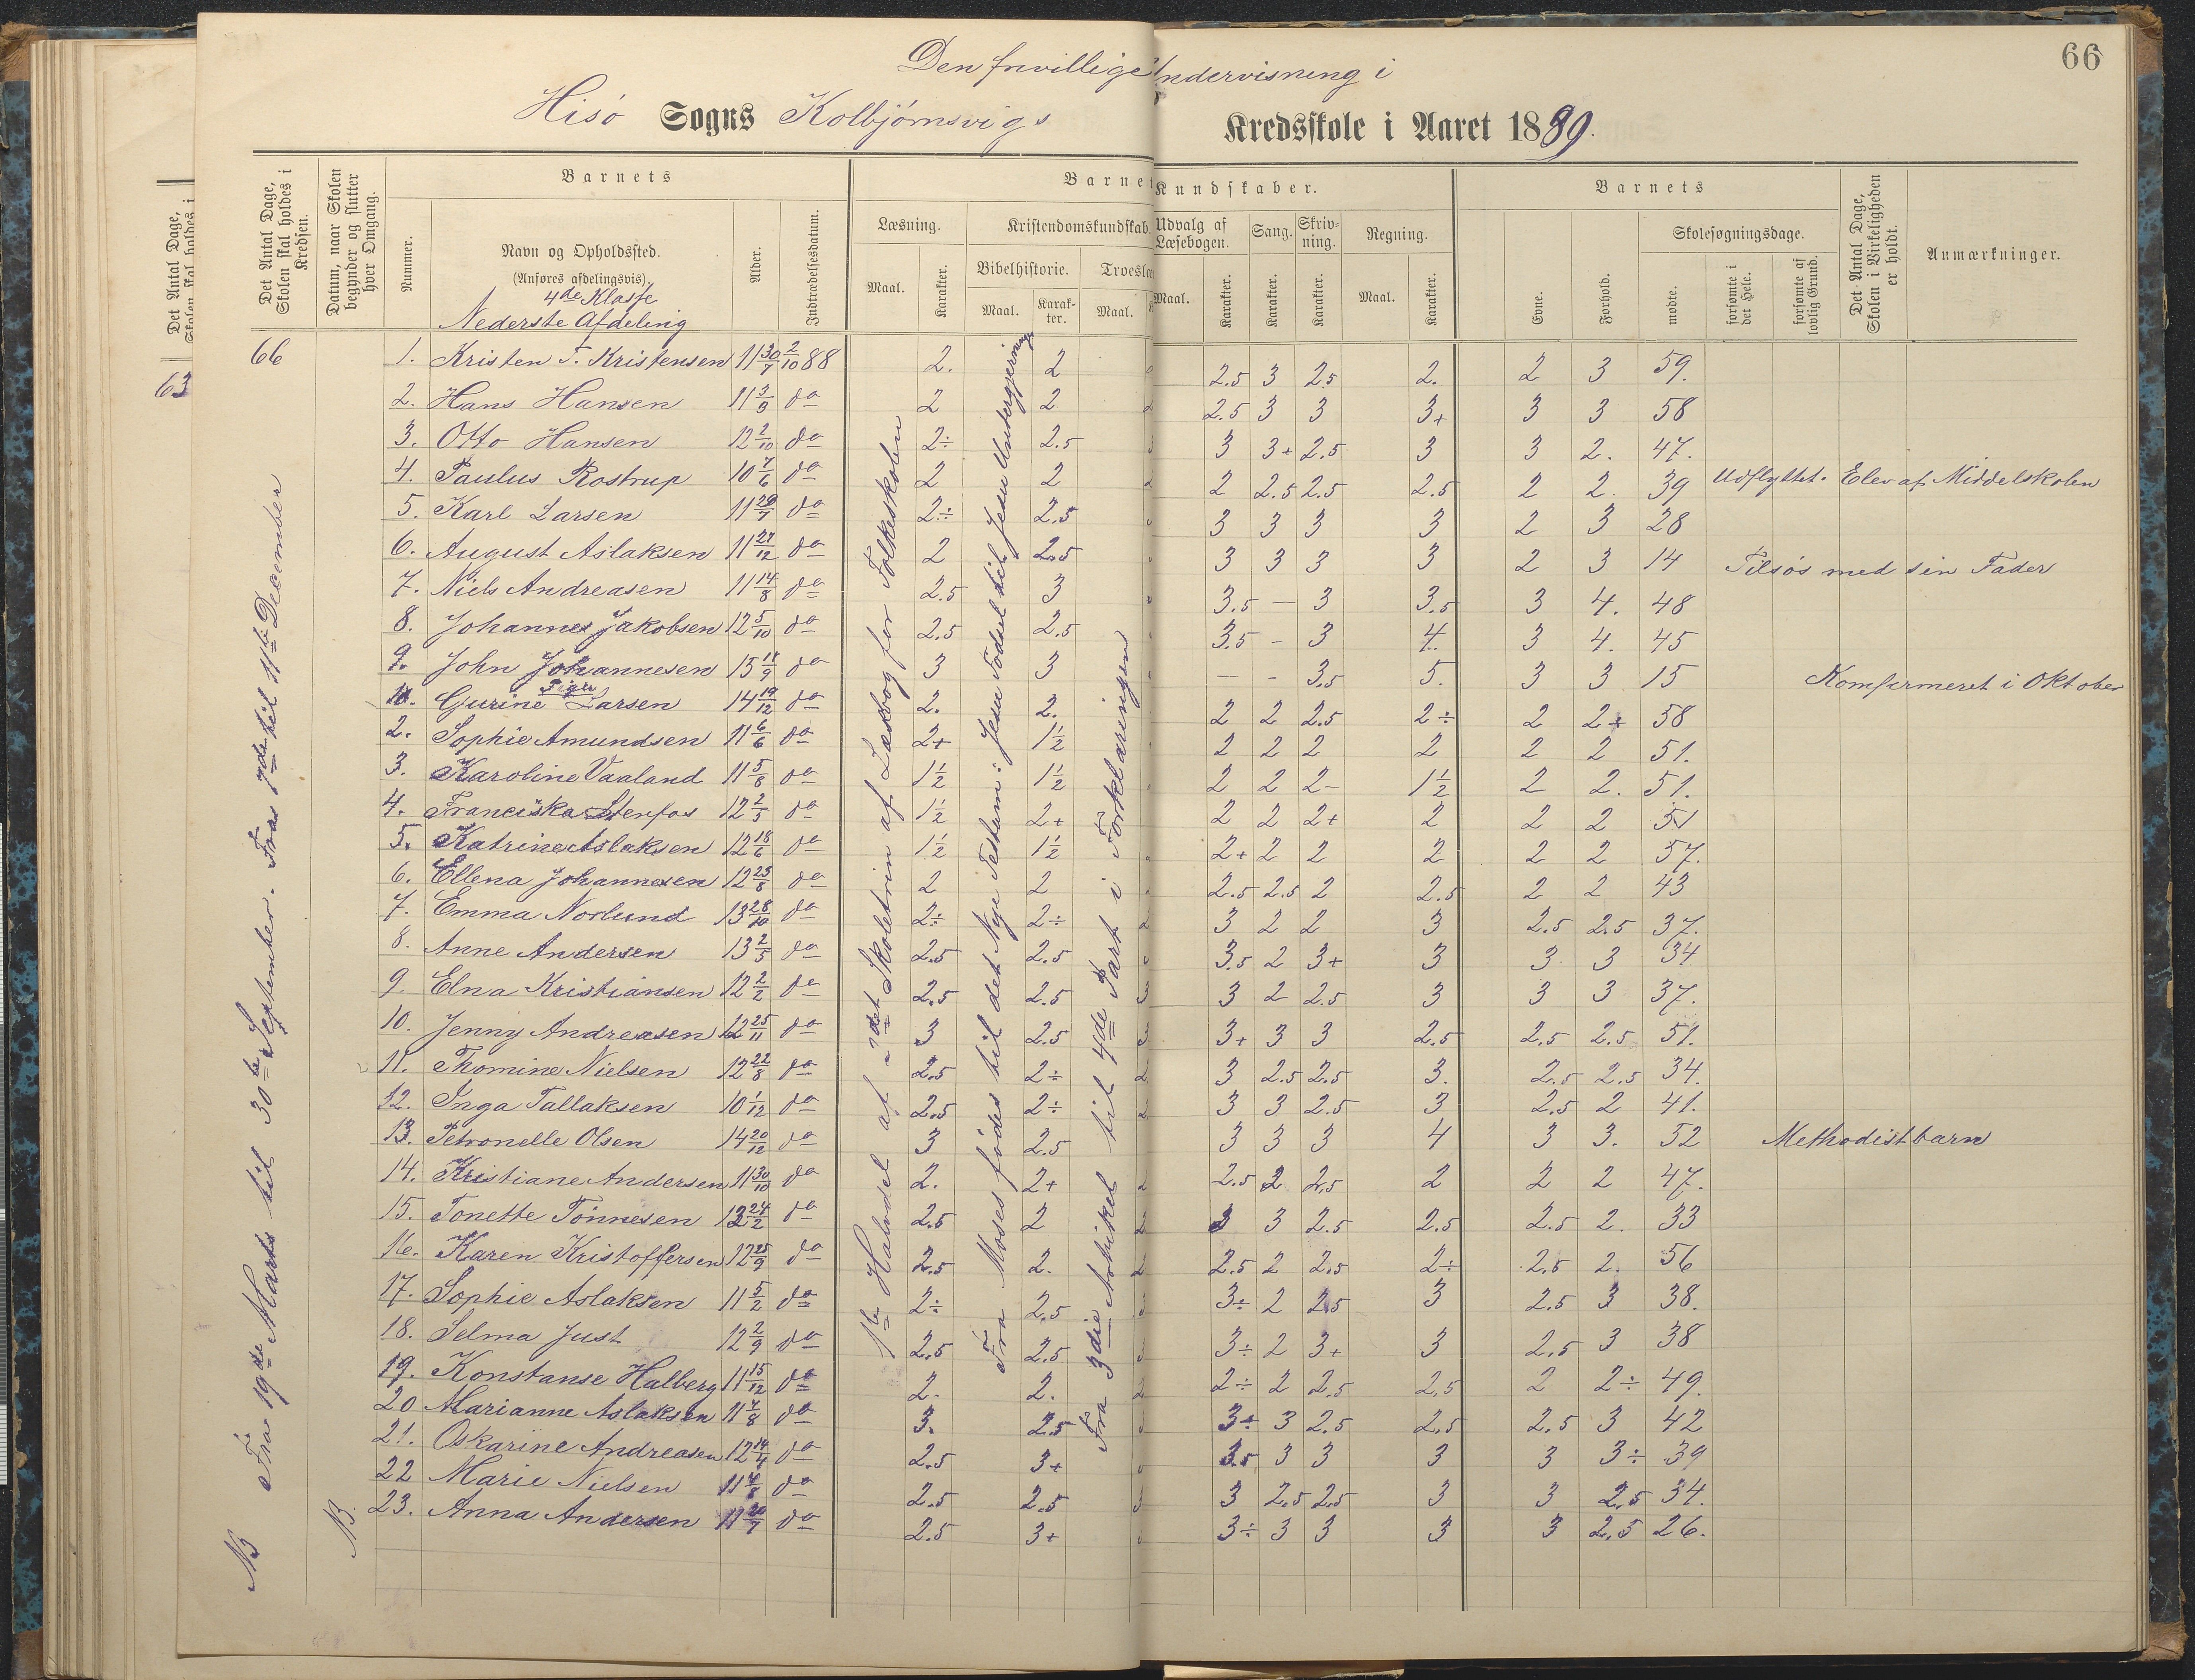 66
Den frivillige Undervisning i
Hisö Sogns Kolbjörnsvigs Kredsskole i Aaret 1889.
Det Antal Dage, Skolen skal holdes i Kredsen.
Datum, naar Skolen begynder og slutter hver Omgang.
Barnets
Nummer.
Navn og Opholdssted.
(Anføres afdelingsvis).
4de Klasse
Nederste Afdeling
Alder.
Indtrædelsesdatum.
Barnets Kundskaber.
Læsning.
Maal.
Karakter.
Kristendomskundskab.
Bibelhistorie.
Maal.
Karakter.
Troeslæ
Maal.
Udvalg af Læsebogen.
Maal.
Karakter.
Sang.
Karakter.
Skrivning.
Karakter.
Regning.
Maal.
Karakter.
Barnets
Evne.
Forhold.
Skolesøgningsdage.
mødte.
forsømte i det Hele.
forsømte af lovlig Grund.
Det Antal Dage, Skolen i Virkeligheden er holdt.
Anmærkninger.
Det Antal Dage,
63
66
NB Fra 19de Marts til 30te September. Fra 7de til 11te December
NB.
1ste Halvdel af 2det Skoletrin af Læsebog for Folkeskolen
Fra Moses fødes til det Nye Testam: Jesu Fødsel til Jesu Undergjerninger
Fra 3die Artikel til 4de Part i Forklaringen
1. Kristen T. Kristensen 11 30/7 2/10 88 2. 2 2.5 3 2.5 2. 2 3 59.
2. Hans Hansen 11 3/9 do 2 2 2.5 3 3 3+ 3 3 58
3. Otto Hansen 12 2/10 do 2÷ 2.5 3 3+ 2.5 3 3 2. 47.
4. Paulus Rostrup 10 7/6 do 2 2 2 2.5 2.5 2.5 2 2. 39 Udflyttet. Elev af Middelskolen
5. Karl Larsen 11 29/7 do 2÷ 2.5 3 3 3 3 2 3 28
6. August Aslaksen 11 27/12 do 2 2.5 3 3 3 3 2 3 14 Tilsøs med sin Fader
7. Niels Andreasen 11 14/8 do 2.5 3 3.5 — 3 3.5 3 4. 48
8. Johannes Jakobsen 12 5/10 do 2.5 2.5 3.5 – 3 4. 3 4. 45
9. John Johannesen 15 18/9 do 3 3 — – 3.5 5. 3 3 15 Konfirmeret i Oktober
Piger
1. Gurine Larsen 14 19/12 do 2. 2. 2 2 2.5 2÷ 2 2+ 58
2. Sophie Amundsen 11 6/6 do 2+ 1½ 2 2 2 2 2 2 51.
3. Karoline Vaaland 11 5/8 do 1½ 1½ 2 2 2– 1½ 2 2. 51.
4. Franciska Stenfos 12 2/5 do 1½ 2+ 2 2 2+ 2 2 2 51
5. Katrine Aslaksen 12 18/6 do 1½ 1½ 2+ 2 2 2 2 2 57.
6. Ellena Johannesen 12 25/8 do 2 2 2.5 2.5 2 2.5 2 2 43
7. Emma Norlund 13 28/10 do 2÷ 2÷ 3 2 2 3 2.5 2.5 37.
8. Anne Andersen 13 2/5 do 2.5 2.5 3.5 2 3+ 3 3 3 34
9. Elna Kristiansen 12 2/2 do 2.5 2.5 3 2 2.5 3 3 3 37.
10. Jenny Andreasen 12 25/11 do 3 2.5 3+ 3 3 2.5 2.5 2.5 51.
11. Thomine Nielsen 12 22/8 do 2.5 2÷ 3 2.5 2.5 3. 2.5 2.5 34.
12. Inga Tallaksen 10 1/12 do 2.5 2÷ 3 3 2.5 3 2.5 2 41.
13. Petronelle Olsen 14 20/12 do 3 2.5 3 3 3 4 3 3. 52 Methodistbarn
14. Kristiane Andersen 11 30/10 do 2. 2+ 2.5 2 2.5 2 2 2 47.
15. Tonette Tönnesen 12 24/2 do 2.5 2 3 3 2.5 2.5 2.5 2. 33
16. Karen Kristoffersen 12 25/9 do 2.5 2. 2.5 2 2.5 2÷ 2.5 2. 56
17. Sophie Aslaksen 11 5/2 do 2÷ 2.5 3÷ 2 2.5 3 2.5 3 38.
18. Selma Just 12 2/9 do 2.5 2.5 3÷ 2 3+ 3 2.5 3 38
19. Konstanse Halberg 11 15/12 do 2. 2. 2÷ 2 2.5 2.5 2 2÷ 49.
20 Marianne Aslaksen 11 7/8 do 3. 2.5 3+ 3 2.5 2.5 2.5 3 42
21. Oskarine Andreasen 12 14/4 do 2.5 3+ 3.5 3 3 3 3 3÷ 39
22 Marie Nielsen 11 4/8 do 2.5 2.5 3 2.5 2.5 3 3 2.5 34.
23. Anna Andersen 11 20/7 do 2.5 3+ 3÷ 3 3 3 3 2.5 26.